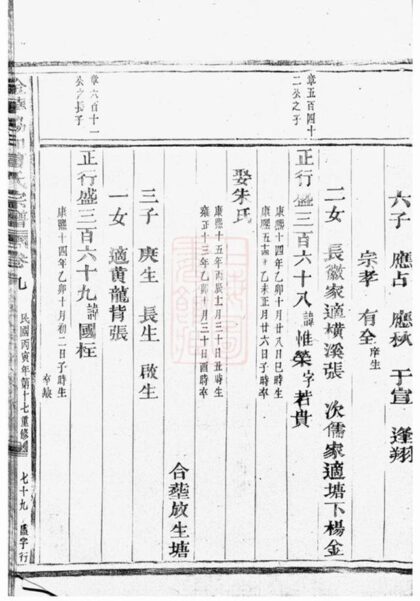 六子 應占 應秋 于宣 逢翔
宗孝 有全 庠生
二女 長徽家適橫溪張 次儒家適塘下楊金
章五百四十
二公之子
正行盛三百六十八 諱惟榮 字若貴
康熙十四年乙卯十月廿八日巳時生
康熙五十四年乙未正月廿六日子時卒
娶朱氏
康熙十五年丙辰月三十日丑時生
雍正十三年乙卯十月三十日酉時卒
合塟放生塘
三子 庚生 長生 啟生
一女 適黃龍背張
章六百十一
公之長子
正行盛三百六十九 諱國柱
康熙十四年乙卯十月初二日子時生
卒缺
氏宗譜 卷九 民國丙寅年第十七重修 七十九 盛字行